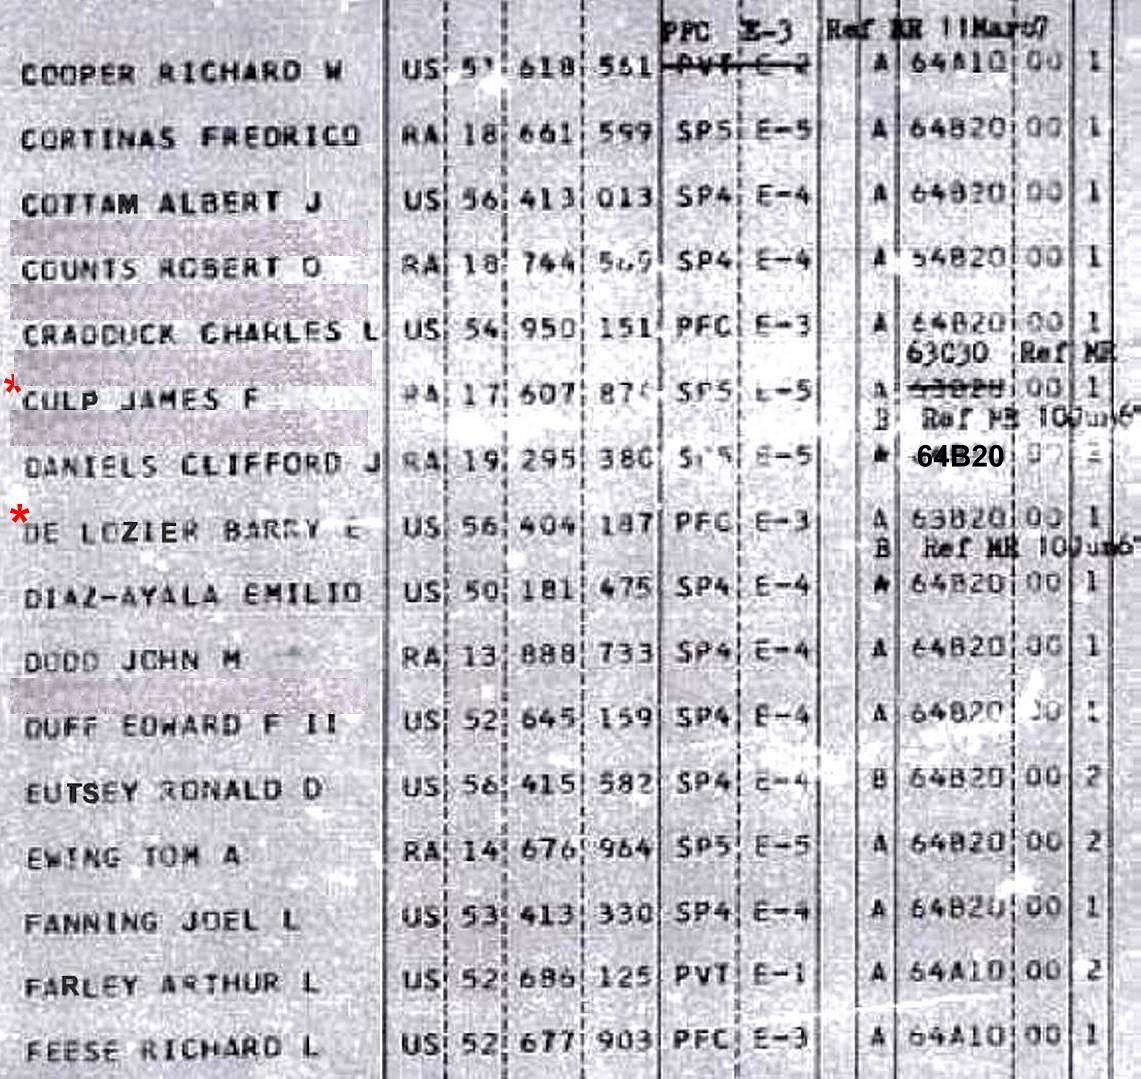 PFC E-3 Ref MR 11Mar67
COOPER RICHARD W US 618 561 PVT E-2 A 64A10 00 1
CORTINAS FREDRICO RA 18 661 599 SP5 E-5 A 64B20 00 1
COTTAM ALBERT J US 56 413 013 SP4 E-4 A 64B20 00 1
COUNTS ROBERT O RA 18 744 SP4 E-4 A 64B20 00 1
CRADDUCK CHARLES L US 54 950 151 PFC E-3 A 64B20 00 1
63C30 Ref MR
* CULP JAMES F RA 17 607 SP5 E-5 A 63B20 00 1
B Ref MR 10Jun6
DANIELS CLIFFORD J RA 19 295 380 SP5 E-5 * 64B20
* DE LOZIER BARRY E US 56 404 187 PFC E-3 A 63B20 00 1
B Ref MR 10Jun6
DIAZ-AYALA EMILIO US 50 181 475 SP4 E-4 * 64B20 00 1
DODD JOHN M RA 13 888 733 SP4 E-4 A 64B20 00 1
DUFF EDWARD F II US 52 645 159 SP4 E-4 A 64B20 00 1
EUTSEY RONALD D US 56 415 582 SP4 E-4 B 64B20 00 2
EWING TOM A RA 14 676 964 SP5 E-5 A 64B20 00 2
FANNING JOEL L US 53 413 330 SP4 E-4 A 64B20 00 1
FARLEY ARTHUR L US 52 686 125 PVT E-1 A 64A10 00 2
FEESE RICHARD L US 52 677 903 PFC E-3 A 64A10 00 1